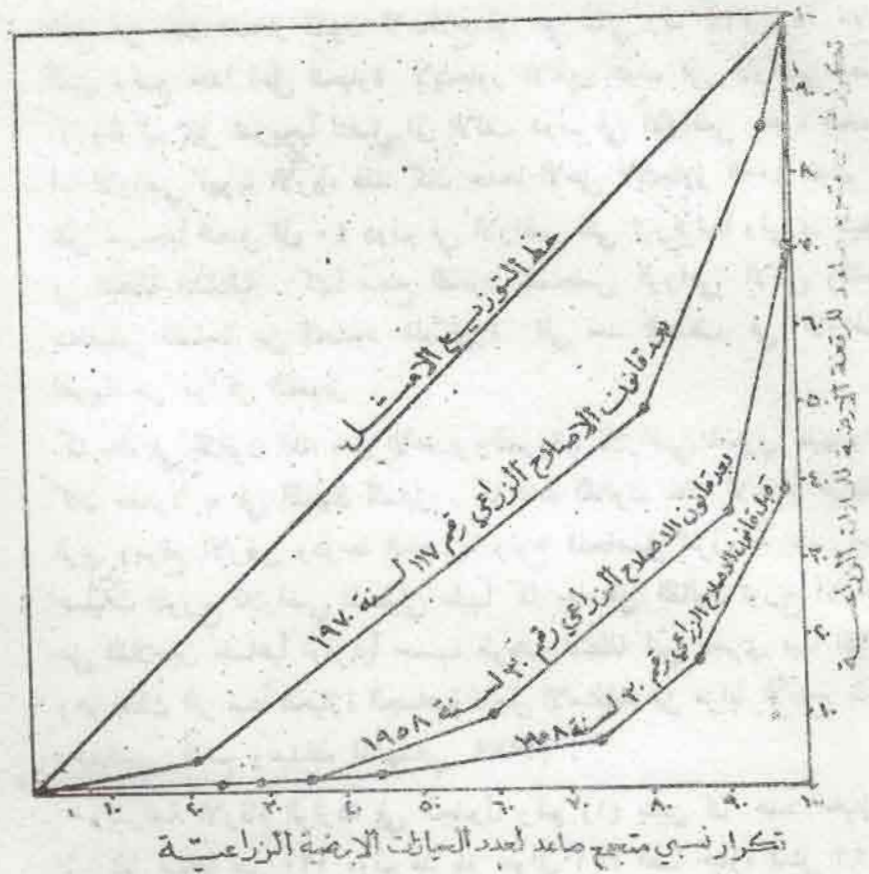 خط التوزيع الامثل
بعد قانون الاصلاح الزراعي رقم ١١٧ لسنة ١٩٧٠
بعد قانون الاصلاح الزراعي رقم ٣٠ لسنة ١٩٥٨
قبل قانون الاصلاح الزراعي رقم ٣٠ لسنة ١٩٥٨
٠ ١٠ ٢٠ ٣٠ ٤٠ ٥٠ ٦٠ ٧٠ ٨٠ ٩٠ ١٠٠
تكرار نسبي متجمع صاعد لعدد الحيازات الارضية الزراعية
تكرار نسبي متجمع صاعد للرقعة الارضية الزراعية